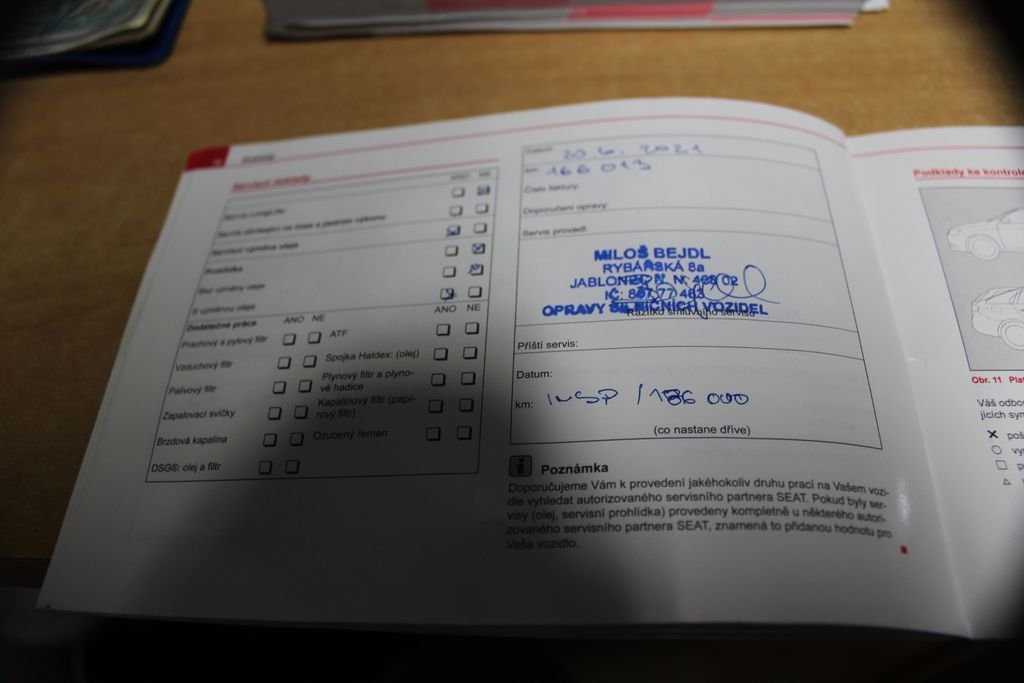 Servisní doklady
ANO NE
Servis LongLife
Servis závislející na čase a jízdním výkonu
Servisní výměna oleje
Prohlídka
Bez výměny oleje
S výměnou oleje
ANO NE
Dodatečné práce
ANO NE
Prachový a pylový filtr
ATF
Vzduchový filtr
Spojka Haldex: (olej)
Palivový filtr
Plynový filtr a plyno-
vé hadice
Zapalovací svíčky
Kapalinový filtr (papí-
rový filtr)
Brzdová kapalina
Ozubený řemen
DSG®: olej a filtr
Datum: 20. 6. 2021
km: 166 013
Číslo faktury:
Doporučení opravy:
Servis provedl:
MILOŠ BEJDL
RYBÁŘSKÁ 8a
JABLONEC N. N. 02
IČ:
OPRAVY SILNIČNÍCH VOZIDEL
Razítko smluvního servisu
Příští servis:
Datum:
km: INSP / 186 000
(co nastane dříve)
Poznámka
Doporučujeme Vám k provedení jakéhokoliv druhu prací na Vašem vozi-
dle vyhledat autorizovaného servisního partnera SEAT. Pokud byly ser-
visy (olej, servisní prohlídka) provedeny kompletně u některého autori-
zovaného servisního partnera SEAT, znamená to přidanou hodnotu pro
Vaše vozidlo.
Podklady ke kontrole
Obr. 11
Váš odbo
jících sym